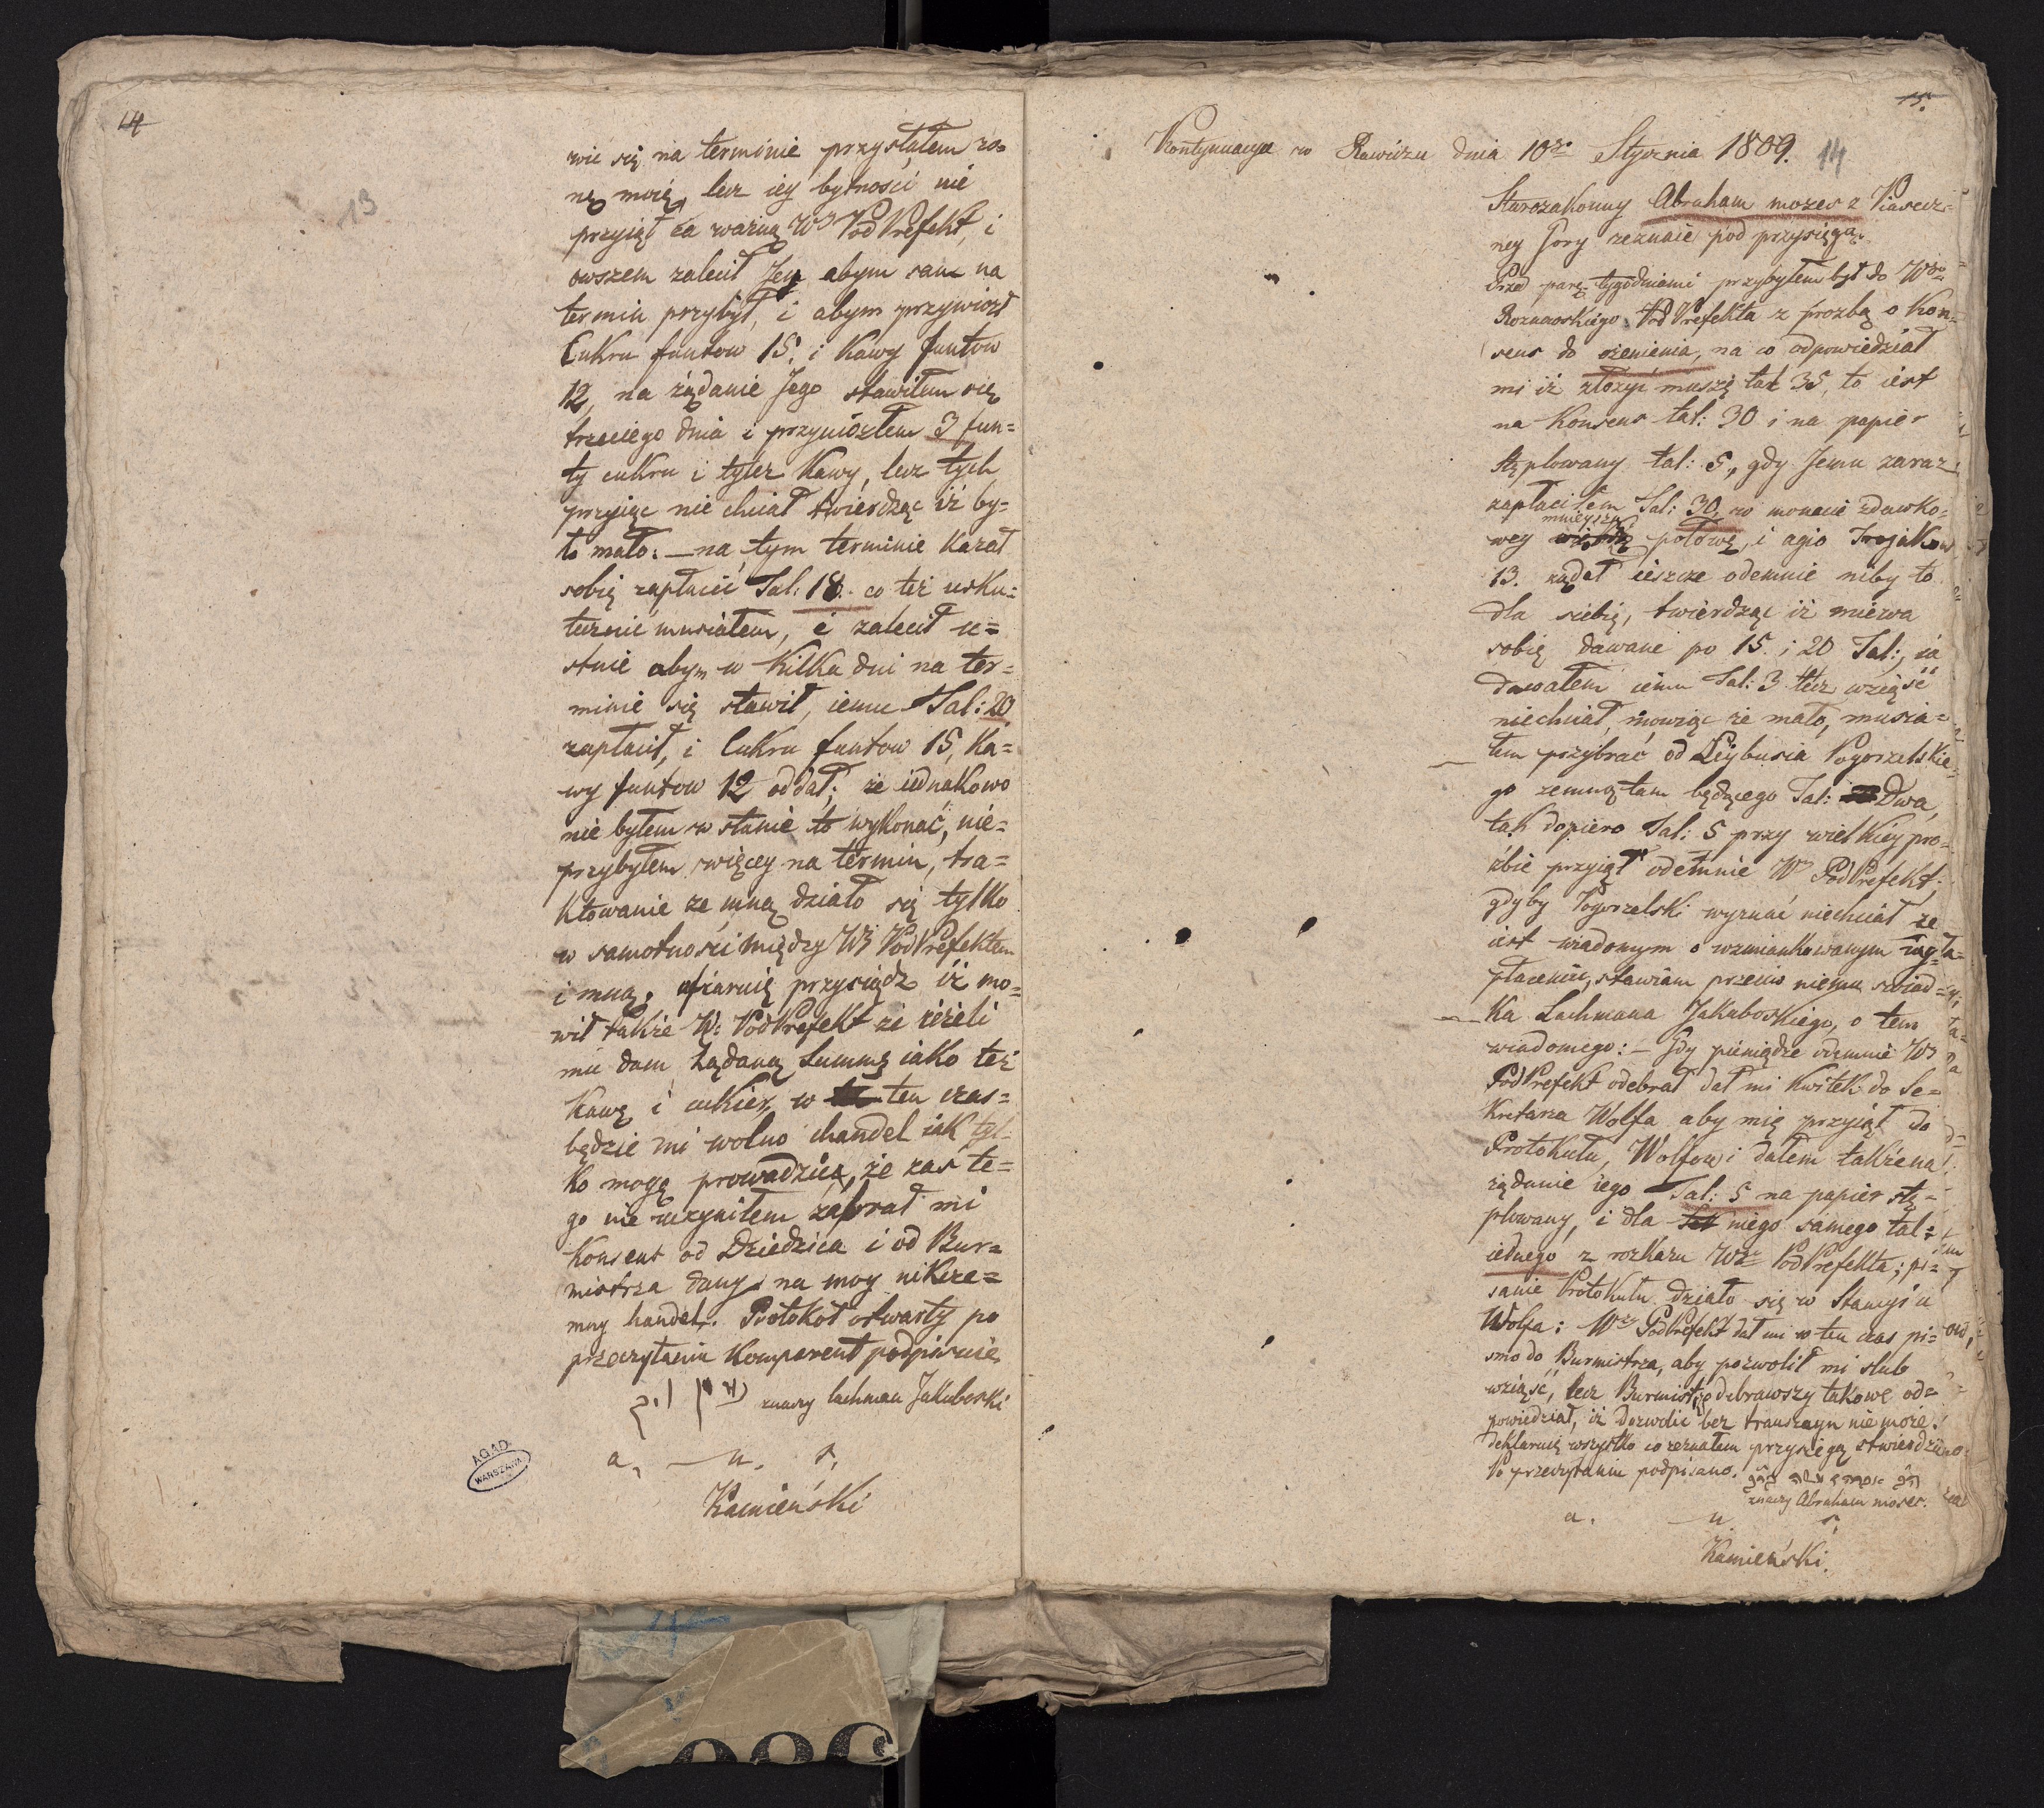 14
13
wić się na terminie przysłałem żo-
nę moię, lecz iey bytności nie
przyiął za ważną Wy PodPrefekt, i
owszem zalecił Jey abym sam na
termin przybył, i abym przywiozł
Cukru funtow 15. i Kawy funtow
12, na żądanie Jego stawiłem się
trzeciego dnia i przyniozłem 3 fun=
ty cukru i tylez Kawy, lecz tych
przyiąc nie chciał twierdząc iż by=
ło mało: — na tym terminie Kazał
sobię zapłacić Tal: 18. co też usku=
tecznić musiałem, i zalecił u=
stnie abym w Kilka dni na ter=
minie się stawił, iemu Tal: 20
zapłacił, i Cukru funtow 15, Ka=
wy funtow 12 oddał; że iednakowo
nie byłem w stanie to wykonać, nie=
przybyłem więcey na termin, tra=
ktowanie ze mną działo się tylko
w samotności między Wy PodPrefektem
i mną. ofiaruię przysiądz iż mo=
wił także W: PodPrefekt że ieżeli
mu dam żądaną Summę iako też
Kawę i cukier, w ten czas=
będzie mi wolno chandel iak tyl-
ko mogę prowadzić, że zas te=
go nie uczyniłem zabrał mi
Konsens od Dziedzica i od Bur=
mistrza dany na moy nikcze=
mny handel. Protokoł otwarty po
przeczytaniu Komparent podpisuie
znaczy lachman Jakuboski
a. u. s.
Kamieński
A.G.A.D.
WARSZAWA
15.
14
Kontynuacya w Rawiczu dnia 10go Stycznia 1809.
Starozakonny Abraham mozes z Piasecz-
ney Gory zeznaie pod przysięgą.
Przed parę tygodniami przybyłem był do Wgo
Roznowskiego PodPrefekta z prozbą o Kon-
sens do ożenienia, na co odpowiedział
mi iż złożyć muszę tal 35, to iest
na Konsens tal: 30 i na papier
stęplowany tal: 5, gdy Jemu zaraz
zapłaciłem Tal: 30, w monecie zdawko-
mnieyszą
wey połowę, i agio Trojakow
13. żądał ieszcze odemnie niby to
dla siebię, twierdząc iż miewa
sobię dawane po 15. i 20 Tal:, ia
dawałem iemu Tal: 3 lecz wziąść
niechciał, mowiąc że mało, musia=
łem przybrać od Leybusia Pogorzelskie-
go zemną tam będącego Tal: Dwa,
tak dopiero Tal: 5 przy wielkiey pro-
źbie przyiął odemnie Wy PodPrefekt;
gdyby Pogorzelski wyznać niechciał że
iest wiadomym o wzmiankowanym
płaceniu, stawiam przeciw niemu swiad=
Ka Lachmana Jakuboskiego, o tem
wiadomego: — Gdy pieniądze odemnie Wy
PodPrefekt odebrał dał mi Kwitek do Se-
kretarza Wolfa aby mię przyiął do
Protokułu, Wolfowi dałem także na
żądanie iego Tal: 5 na papier stę=
plowany, i dla niego samego tal=
iednego z rozkazu Wgo PodPrefekta; pi=
sanie Protokułu działo się w Stancyi u
Wolfa: Wy PodPrefekt dał mi w ten czas pi=
smo do Burmistrza, aby pozwolił mi slub
wziąść, lecz Burmistrz odebrawszy takowe od=
powiedział, iż dozwolić bez transzeyn nie może.
deklaruię wszystko co zeznałem przysięgą stwierdzić
Po przeczytaniu podpisano.
znaczy Abraham moses.
a. u. s.
Kamieński.